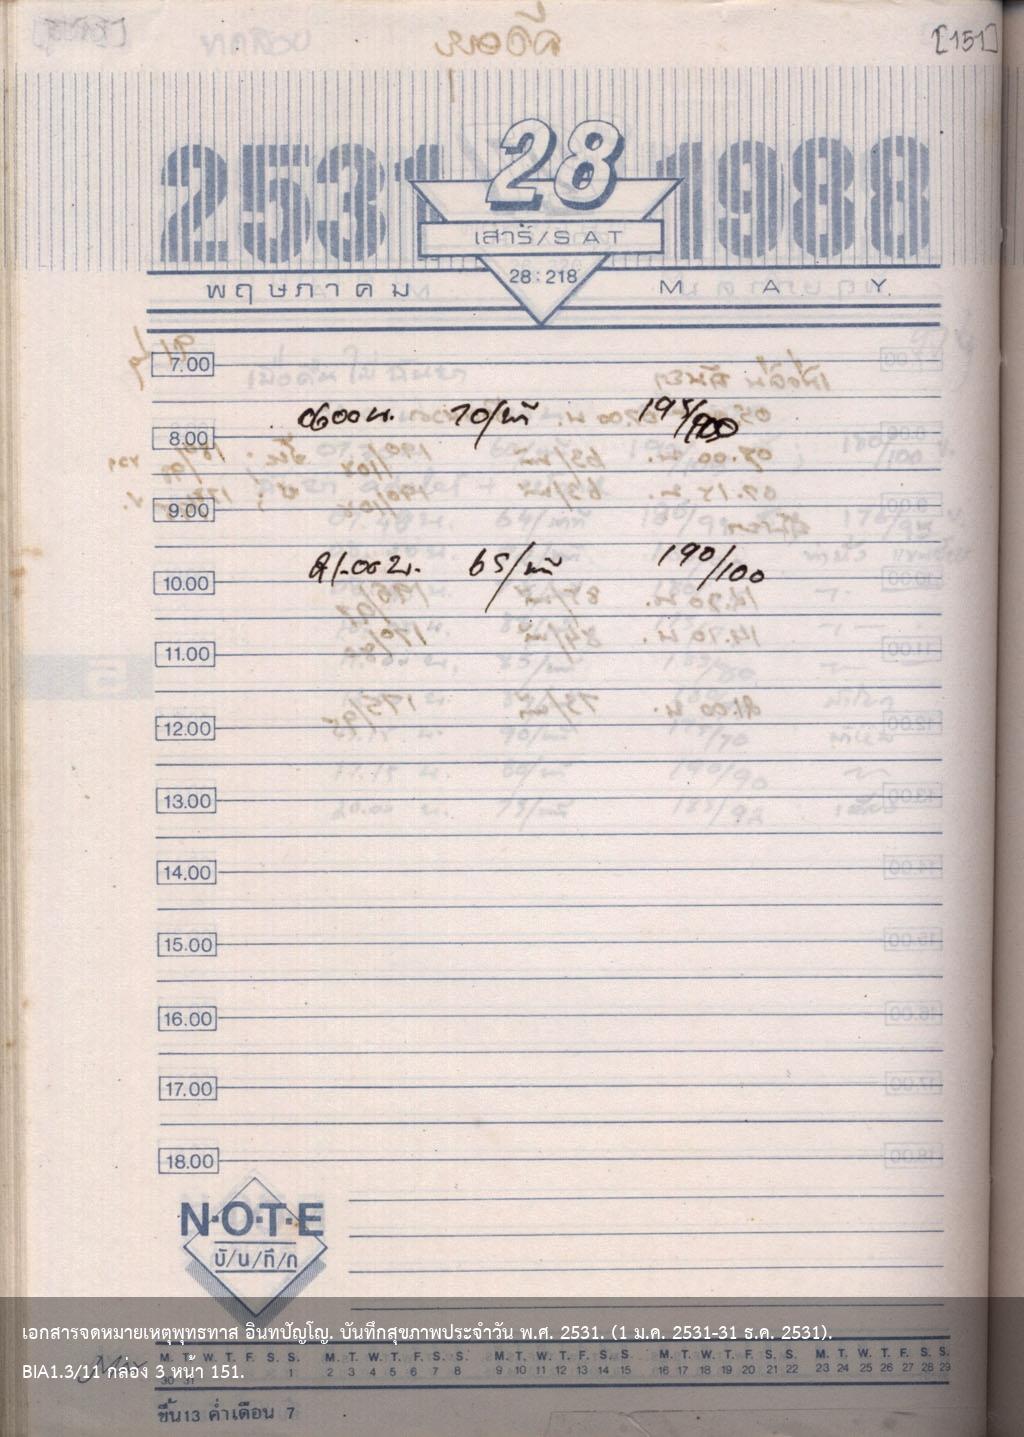 [151]
2531 28 1988
เสาร์/SAT
28:218
พฤษภาคม MAY.
7.00
0600 น. 70/นาที 195/
8.00
9.00
21.00 น. 65/นาที 190/100
10.00
11.00
12.00
13.00
14.00
15.00
16.00
17.00
18.00
N·O·T·E
บั/น/ทึ/ก
เอกสารจดหมายเหตุพุทธทาส อินทปัญโญ. บันทึกสุขภาพประจำวัน พ.ศ. 2531. (1 ม.ค. 2531-31 ธ.ค. 2531).
M. T. W. T. F. S. S. M. T. W. T. F. S. S. M. T. W. T. F. S. S. M. T. W. T. F. S. S. M. T. W. T. F. S. S.
1 2 3 4 5 6 7 8 9 10 11 12 13 14 15 16 17 18 19 20 21 22 23 24 25 26 27 28 29
30 31
BIA1.3/11 กล่อง 3 หน้า 151.
ขึ้น 13 ค่ำเดือน 7